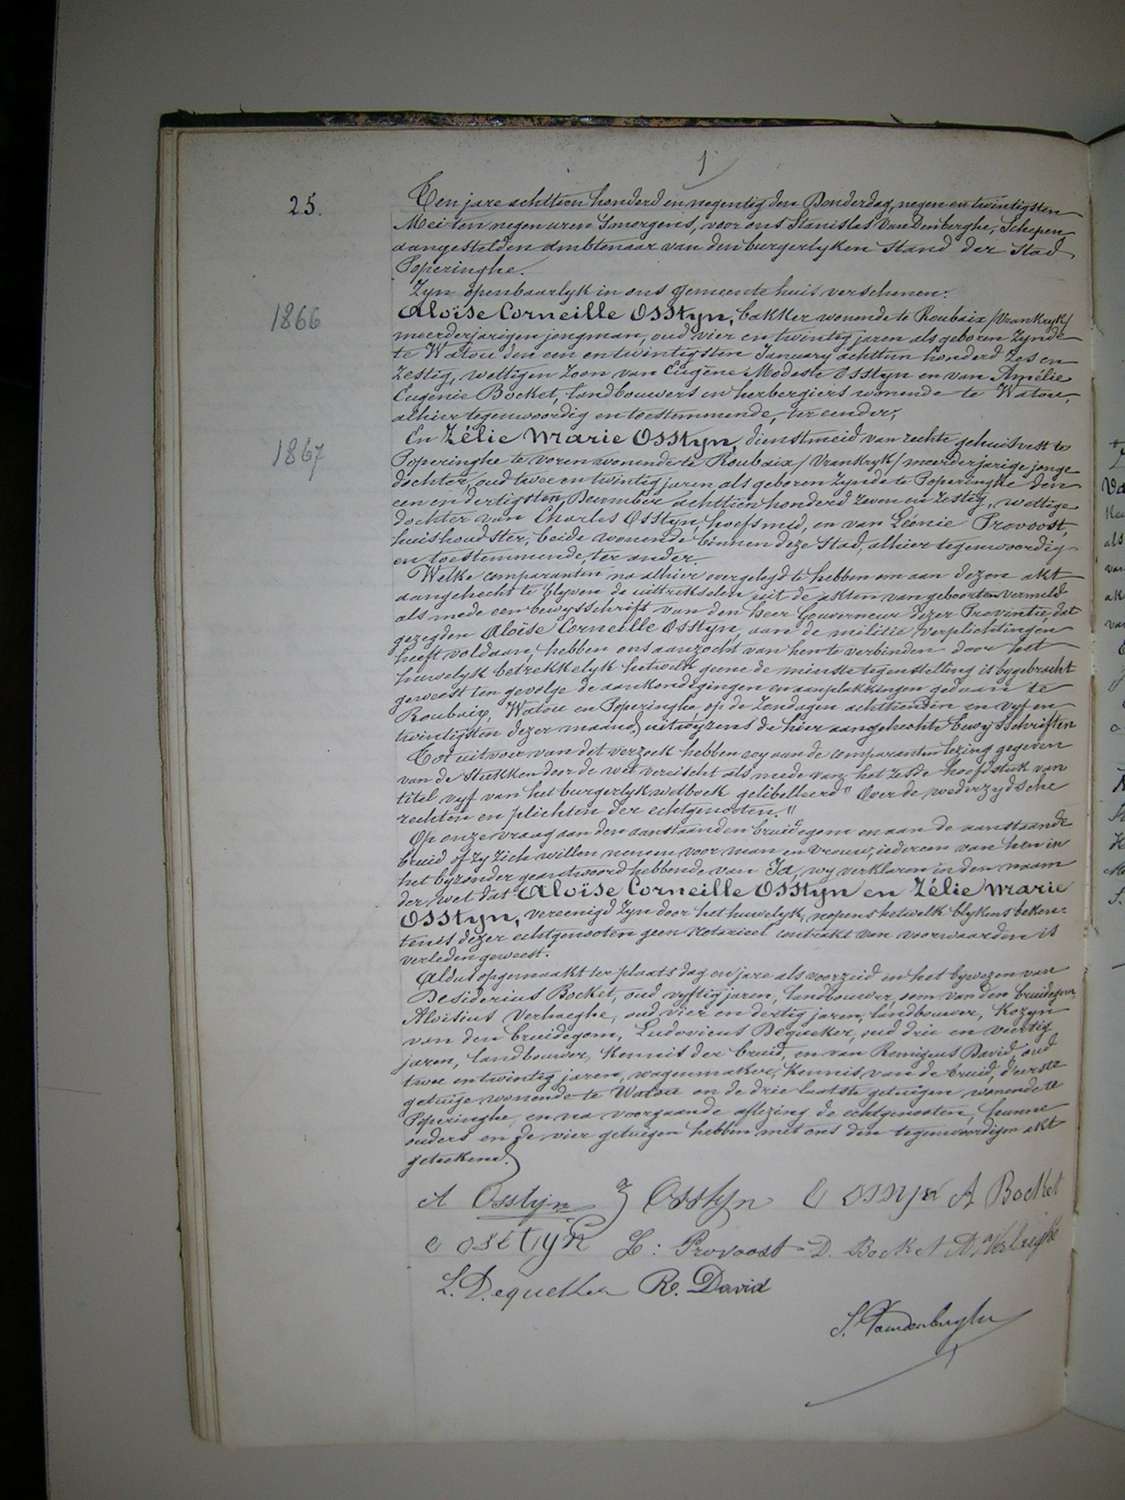 1
25.
Ten jare achttien honderd en negentig den Donderdag, negen en twintigsten
Mei ten negen uren Smorgens, voor ons Stanislas Van Denberghe, Schepen
aangestelden ambtenaar van den burgerlyken Stand der Stad
Poperinghe.
Zyn openbaarlyk in ons gemeentehuis verschenen:
1866
Aloïse Corneille Osstyn, bakker wonende te Roubaix /Vrankryk/
meerderjarigen jongman, oud vier en twintig jaren als geboren zynde
te Watou den een en twintigsten January achttien honderd zes en
zestig, wettigen zoon van Eugène Modeste Osstyn en van Amélie
Eugenie Bocket, landbouwers en herbergiers wonende te Watou,
alhier tegenwoordig en toestemmende, ter eender,
1867
En Zélie Marie Osstyn, dienstmeid van rechte gehuisvest te
Poperinghe te voren wonende te Roubaix /Vrankryk/ meerderjarige jonge
dochter, oud twee en twintig jaren als geboren zynde te Poperinghe den
een en dertigsten December achttien honderd zeven en zestig, wettige
dochter van Charles Osstyn, hoefsmid, en van Léonie Provoost,
huishoudster, beide wonende binnen deze Stad, alhier tegenwoordig
en toestemmende, ter ander.
Welke comparanten na alhier overgelegd te hebben om aan dezen akt
aangehecht te blyven de uittrekselen uit de akten van geboorten vermeld
als mede een bewysschrift van den heer Gouverneur dezer Provintie, dat
gezegden Aloïse Corneille Osstyn, aan de militie verplichtingen
heeft voldaan, hebben ons aanzocht van hen te verbinden door het
huwelyk betrekkelyk hetwelk geene de minste tegenstelling is bygebracht
geweest ten gevolge de aankondigingen en aanplakkingen gedaan te
Roubaix, Watou en Poperinghe op de Zondagen achttienden en vyf en
twintigsten dezer maand, uitwyzens de hier aangehechte bewysschriften
Tot uitvoer van dit verzoek hebben wy aan de comparanten lezing gegeven
van de stukken door de wet vereischt als mede van het zesde hoofdstuk van
titel vyf van het burgerlyk wetboek gelibelleerd "Over de wederzydsche
rechten en plichten der echtgenooten."
Op onze vraag aan den aanstaanden bruidegom en aan de aanstaande
bruid of zy zich willen nemen voor man en vrouw, iedereen van hen in
het byzonder geantwoord hebbende van Ja, wy verklaren in den naam
der wet dat Aloïse Corneille Osstyn en Zélie Marie
Osstyn, vereenigd zyn door het huwelyk, nopens hetwelk blykens beken=
tenis dezer echtgenooten geen notarieel contrakt van voorwaarden is
verleden geweest.
Aldus opgemaakt ter plaats dag en jare als voorzeid en het bywezen van
Desiderius Bocket, oud vyftig jaren, landbouwer, oom van den bruidegom,
Aloisius Verhaeghe, oud vier en dertig jaren, landbouwer, Kozyn
van den bruidegom, Ludovicus Dequeker, oud drie en veertig
jaren, landbouwer, kennis der bruid, en van Remigius David, oud
twee en twintig jaren, wagenmaker, kennis van de bruid, d'eerste
getuige wonende te Watou en de drie laatste getuigen wonende te
Poperinghe, en na voorgaande aflezing de echtgenooten, hunne
ouders en de vier getuigen hebben met ons den tegenwoordigen akt
geteekend.
A Osstyn Z Osstyn E Osstyn A Bocket
C osstyn L: Provoost D. Bocket A Verhaeghe
L. Dequeker R. David
S. Vandenberghe